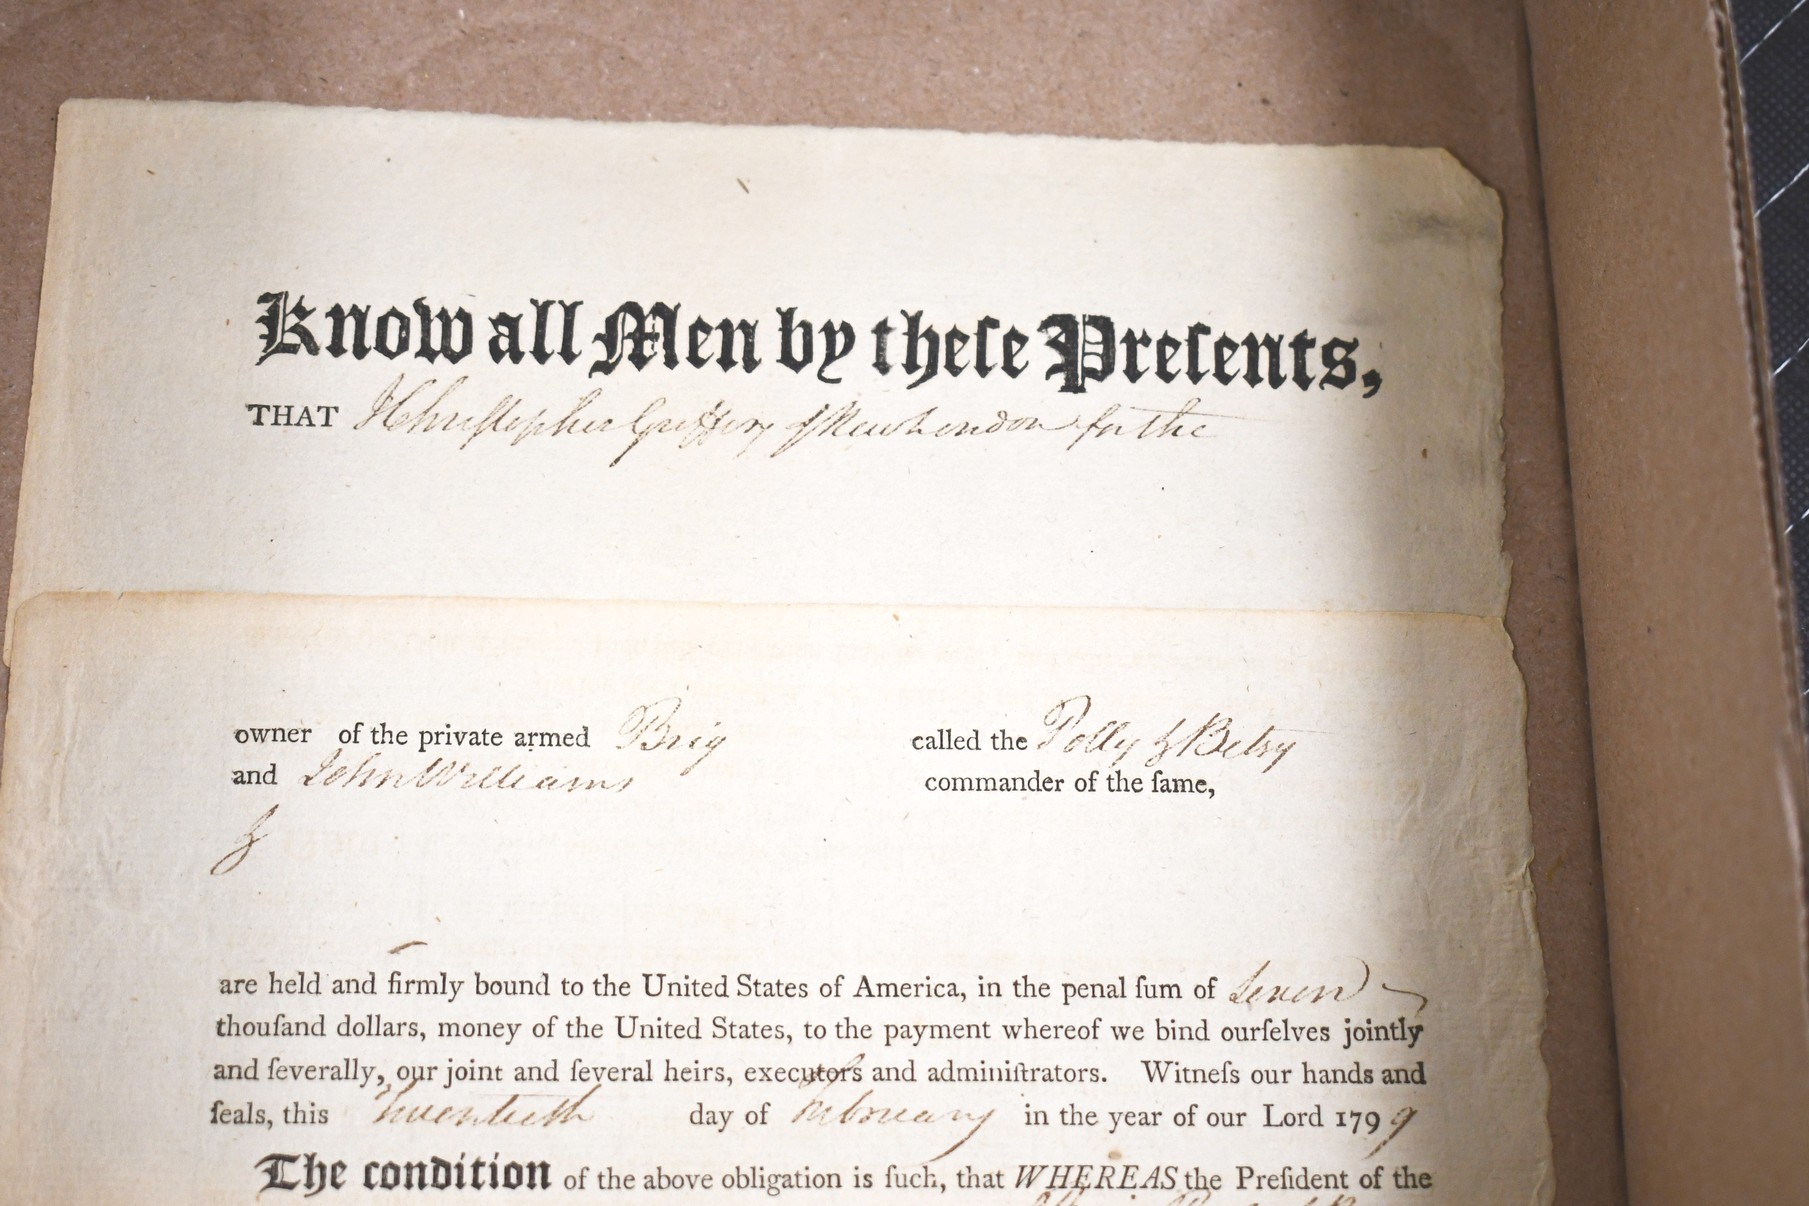 Know all Men by theſe Preſents,
THAT I Christopher Griffing of New London for the
owner of the private armed Brig called the Polly & Betsy
and John Williams commander of the ſame,
&
are held and firmly bound to the United States of America, in the penal ſum of Seven
thouſand dollars, money of the United States, to the payment whereof we bind ourſelves jointly
and ſeverally, our joint and ſeveral heirs, executors and adminiſtrators. Witneſs our hands and
ſeals, this Twentieth day of February in the year of our Lord 1799
The condition of the above obligation is ſuch, that WHEREAS the Preſident of the